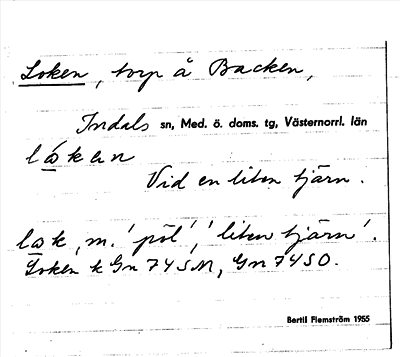 Loken, torp å Backen,
Indals sn, Med. ö. doms. tg, Västernorrl. län
lɷ̄kɐn
Vid en liten tjärn.
lɷk, m. 'pöl', 'liten tjärn'.
Loken k Gn 74 SM, Gn 74 SO.
Bertil Flemström 1955